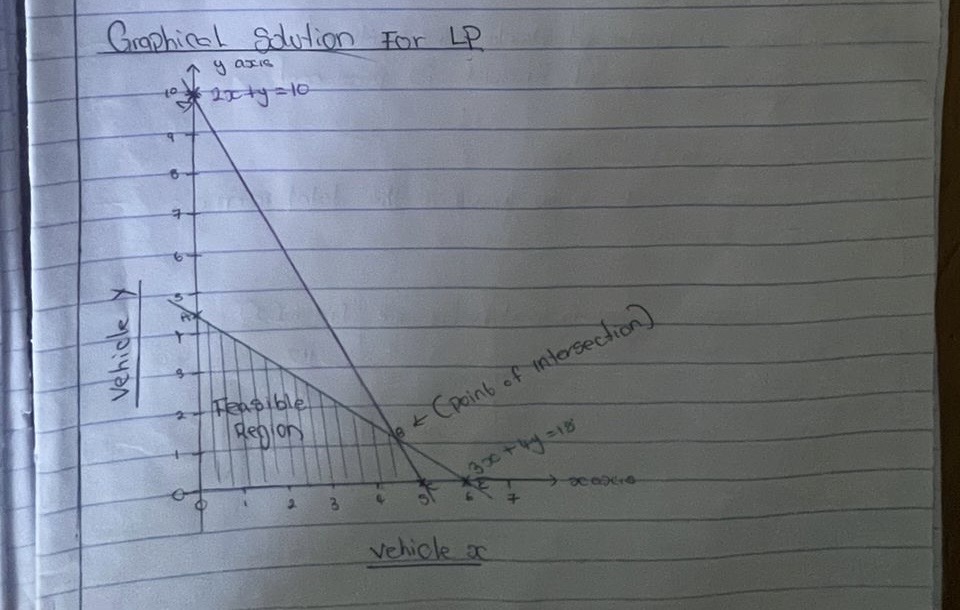 Graphical Solution For LP
y axis
10
2x+y=10
9
8
7
6
5
A
4
3
2
1
0
Vehicle Y
Feasible
Region
B
(point of intersection)
3x+4y=18
0 1 2 3 4 5 6 7
x axis
Vehicle x